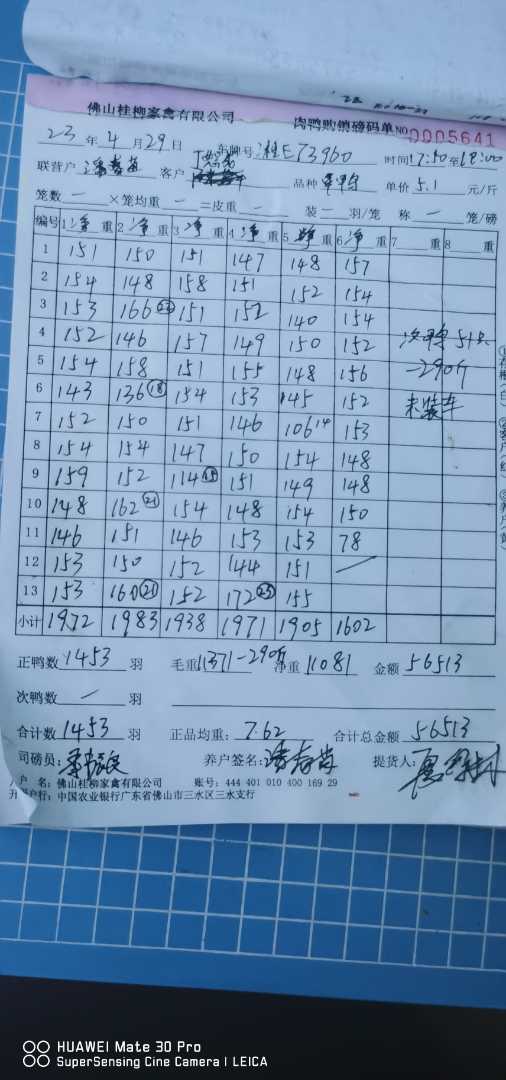 佛山桂柳家禽有限公司 肉鸭购销磅码单 NO 0005641
23 年 4 月 29 日 车牌号: 桂E73960 时间 17:50 至 18:00
联营户 客户 品种 单价 5.1 元/斤
笼数 一 ×笼均重 一 =皮重 一 装 二 羽/笼 称 一 笼/磅
编号 1 净 重 2 净 重 3 净 重 4 净 重 5 净 重 6 净 重 7 重 8 重
1 151 150 151 147 148 157
2 154 148 158 151 152 154
3 153 166 (22) 151 152 140 154
4 152 146 157 149 150 152 次鸭 51只
5 154 158 151 155 148 156 -290斤
6 143 136 (18) 154 153 145 152 未装车
7 152 150 151 146 106 14 153
8 154 154 147 150 154 148
9 159 152 114 (15) 151 149 148
10 148 162 (21) 154 148 154 150
11 146 151 146 153 153 78
12 153 150 152 144 151 /
13 153 160 (21) 152 172 (23) 155
小计 1972 1983 1938 1971 1905 1602
正鸭数 1453 羽 毛重 11371-290斤 净重 11081 金额 56513
次鸭数 一 羽
合计数 1453 羽 正品均重: 7.62 合计总金额: 56513
司磅员: 养户签名: 提货人:
户 名: 佛山桂柳家禽有限公司 账号: 444 401 010 400 169 29
开户行: 中国农业银行广东省佛山市三水区三水支行
HUAWEI Mate 30 Pro
SuperSensing Cine Camera | LEICA